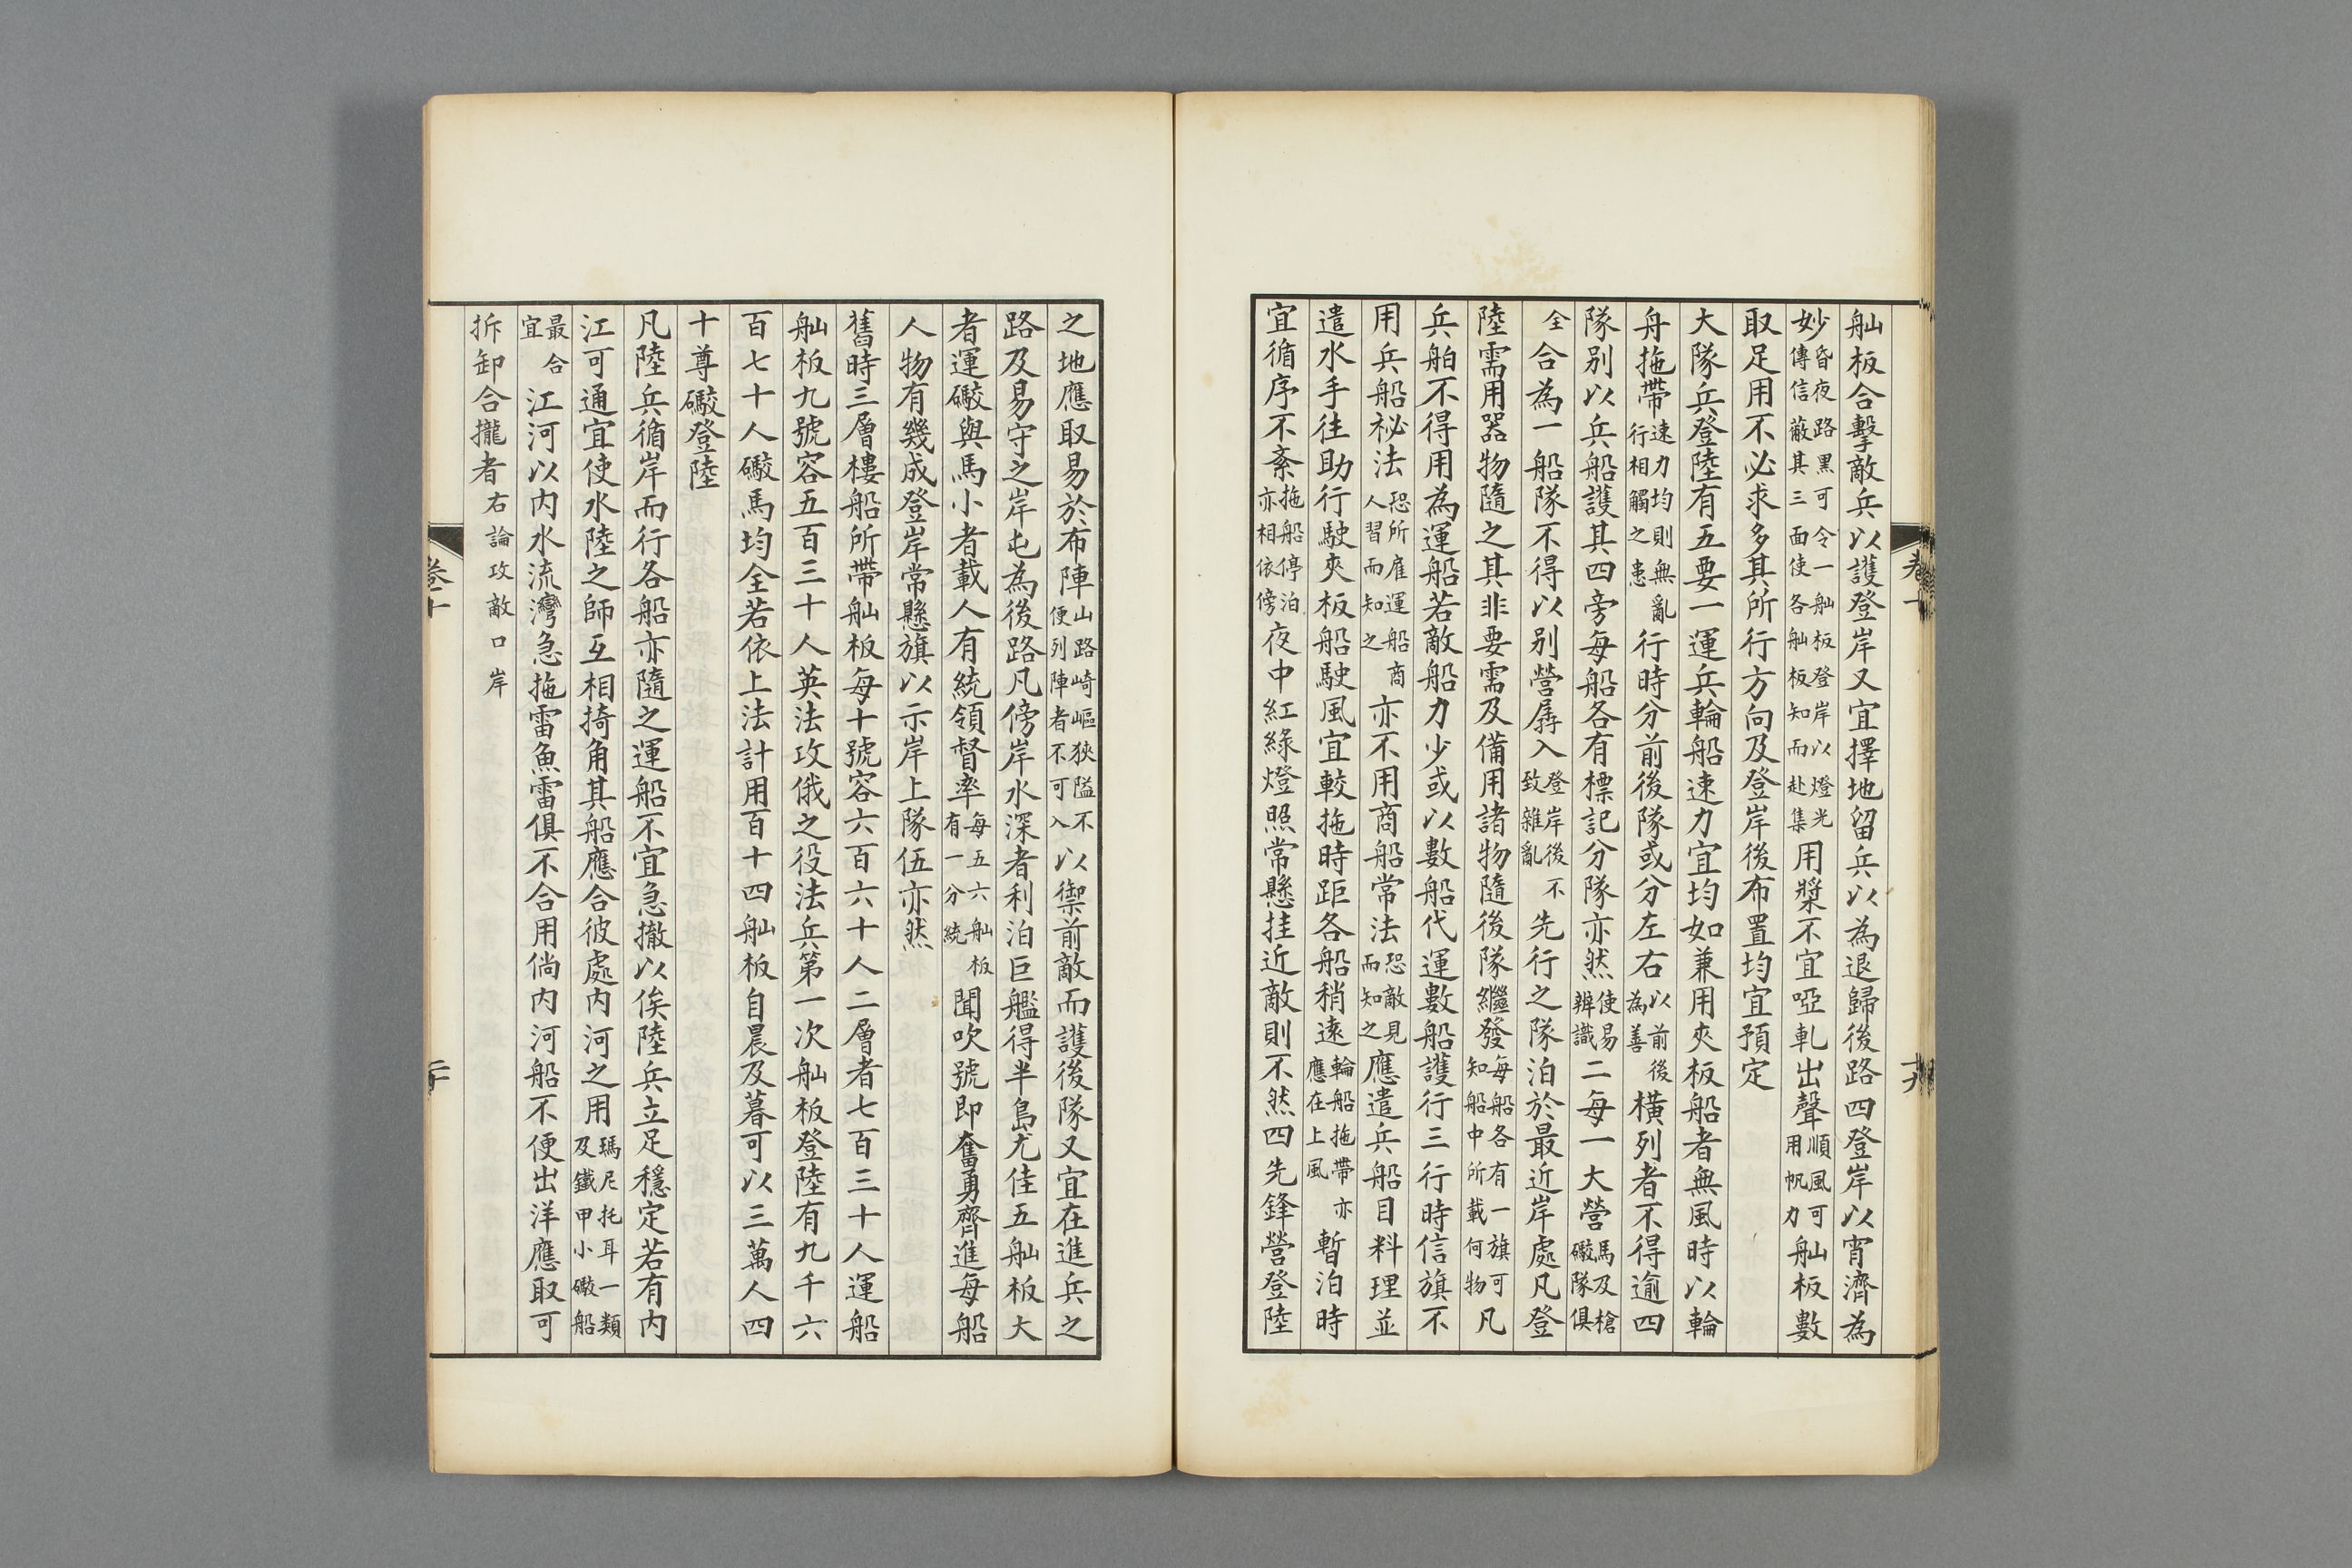 舢板合擊敵兵以護登岸又宜擇地留兵以為退歸後路四登岸以宵濟為
妙昏夜路黑可令一舢板登岸以燈光傳信蔽其三面使各舢板知而赴集用槳不宜啞軋出聲順風可用帆力舢板數
取足用不必求多其所行方向及登岸後布置均宜預定
大隊兵登陸有五要一運兵輪船速力宜均如兼用夾板船者無風時以輪
舟拖帶速力均則無亂行相觸之患行時分前後隊或分左右以前後為善橫列者不得逾四
隊別以兵船護其四旁每船各有標記分隊亦然使易辨識二每一大營馬及槍礮隊俱
全合為一船隊不得以別營孱入登岸後不致雜亂先行之隊泊於最近岸處凡登
陸需用器物隨之其非要需及備用諸物隨後隊繼發每船各有一旗可知船中所載何物凡
兵舶不得用為運船若敵船力少或以數船代運數船護行三行時信旗不
用兵船祕法恐所雇運船商人習而知之亦不用商船常法恐敵見而知之應遣兵船目料理並
遣水手往助行駛夾板船駛風宜較拖時距各船稍遠輪船拖帶亦應在上風暫泊時
宜循序不紊拖船停泊亦相依傍夜中紅綠燈照常懸挂近敵則不然四先鋒營登陸
卷十
十九
之地應取易於布陣山路崎嶇狹隘不便列陣者不可入以禦前敵而護後隊又宜在進兵之
路及易守之岸屯為後路凡傍岸水深者利泊巨艦得半島尤佳五舢板大
者運礮與馬小者載人有統領督率每五六舢板有一分統聞吹號即奮勇齊進每船
人物有幾成登岸常懸旗以示岸上隊伍亦然
舊時三層樓船所帶舢板每十號容六百六十人二層者七百三十人運船
舢板九號容五百三十人英法攻俄之役法兵第一次舢板登陸有九千六
百七十人礮馬均全若依上法計用百十四舢板自晨及暮可以三萬人四
十尊礮登陸
凡陸兵循岸而行各船亦隨之運船不宜急撤以俟陸兵立足穩定若有內
江可通宜使水陸之師互相掎角其船應合彼處內河之用瑪尼托耳一類及鐵甲小礮船
最合宜江河以內水流灣急拖雷魚雷俱不合用倘內河船不便出洋應取可
拆卸合攏者右論攻敵口岸
卷十
二十